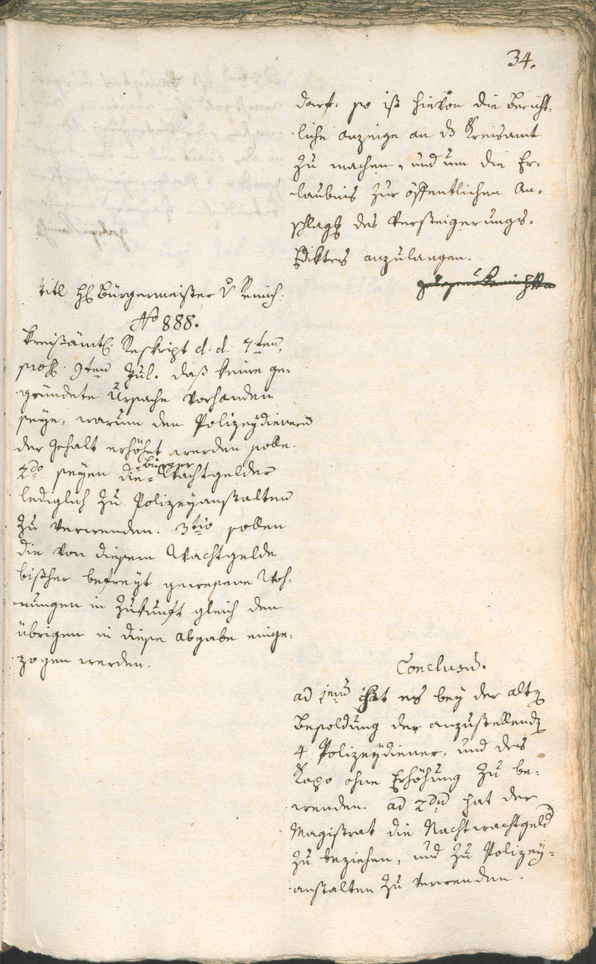 34.
darf. so ist hievon die Bericht-
liche Anzeige an ds Kreisamt
zu machen, und um die Er-
laubnis zur öffentlichen An-
schlagg des Versteigerungs-
Ediktes anzulangen.
titl H Bürgermeister v
No 888.
Kreisämtl. Reskript d. d. 7ten,
9ten Jul. daß keine ge-
gründete Ursache vorhanden
seye, warum den Polizeydienern
der Gehalt erhöhet werden solle.
2do seyen die Bürger Wachtgelder
lediglich zu Polizeyanstalten
zu verwenden. 3tio sollen
die von diesem Wachtgelde
bißher befreyt gewesene Woh-
nungen in Zukunft gleich den
übrigen in diese Abgabe einge-
zogen werden.
Conclusū.
ad 1mū hat es bey der alten
Besoldung der anzustellenden
4 Polizeydiener, und des
Kapo ohne Erhöhung zu be-
wenden. ad 2dū hat der
Magistrat die Nachtwachtgeld
zu beziehen, und zu Polizey-
anstalten zu verwenden.